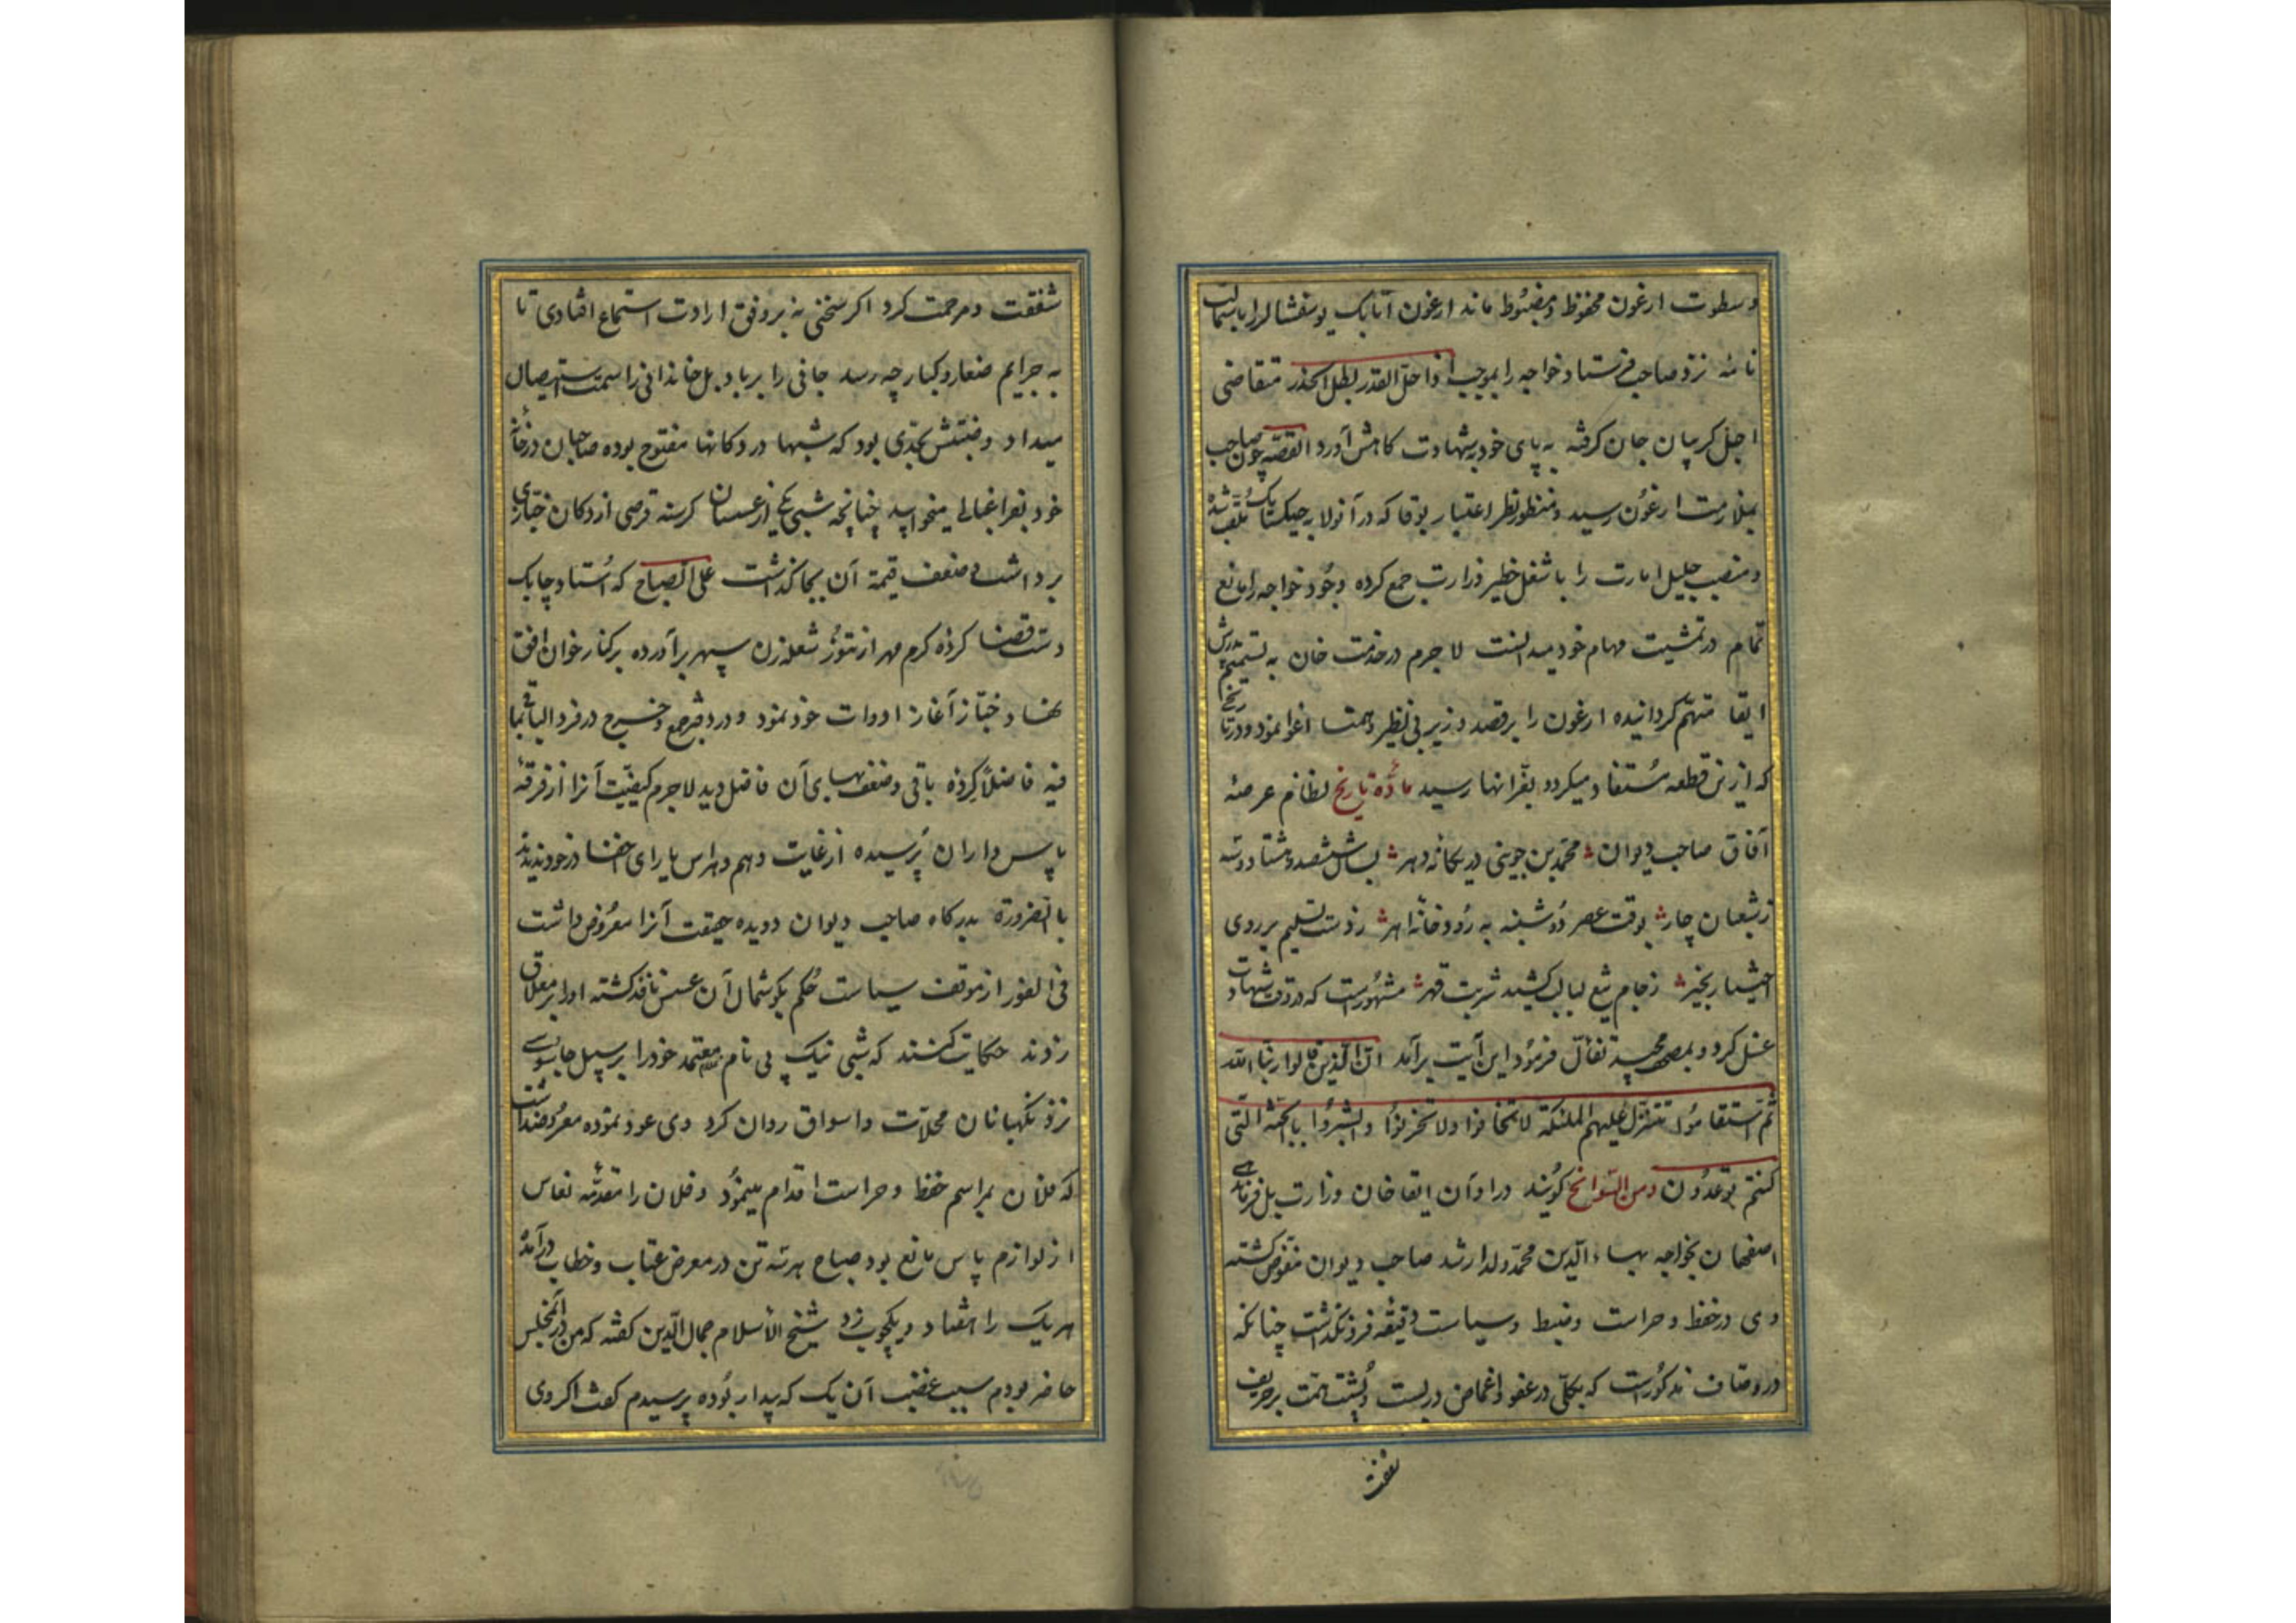 و سطوت ارغون محفوظ و مضبوط ماند ارغون اتابک یوسفشاه لررا باستمالت
نامه نزد صاحب فرستاد و خواجه را بموجب اذا حلّ القدر بطل الحذر متقاضی
اجل کریبان جان کرفته به پای خود بشهادت کاهش آورد القصه چون صاحب
بملازمت ارغون رسید و منظور نظر اعتبار بوقا که در آنولا به چیکسانک ملقب شده
و منصب جلیل امارت را با شغل خطیر وزارت جمع کرده وجود خواجه را مانع
تمام در تمشیت مهام خود میدانست لاجرم در خدمت خان به تسمیم پدرش
ابقا متهم کردانیده ارغون را بر قصد وزیر بی نظیر و همتا اغوا نمود و در تاریخی
که از این قطعه مستفاد میکردد بقرانها رسید مادّه تاریخ نظام عرصهٔ
آفاق صاحب دیوان محمد بن جوینی در یکانهٔ دهر بسال ششصد و هشتاد و سه
ز شعبان چار بوقت عصر دوشنبه به رودخانهٔ اهر ز دست تسلیم بر روی
اختیار بخیر ز جام تیغ لبالب کشید شربت قهر مشهورست که در وقت شهادت
غسل کرد و بمصحف مجید تفأل فرمود این آیت برآمد انّ الّذین قالوا ربّنا الله
ثمّ استقاموا تتنزّل علیهم الملئکة لا تخافوا ولا تحزنوا و ابشروا بالجنّة الّتی
کنتم توعدون و من السّوانح کویند در اوان ابقا خان وزارت بل فرماندهی
اصفهان بخواجه بهاء الدّین محمّد ولد ارشد صاحب دیوان مفوّض کشته
وی در حفظ و حراست و ضبط و سیاست دقیقه فرو نکذاشت چنانکه
در وصّاف مذکورست که بکلّی در عفو و اغماض دربست و پشت همّت بر حریف
شفقت
شفقت و مرحمت کرد اکر سخنی نه بر وفق ارادت استماع افتادی تا
به جرایم صغار و کبار چه رسد جانی را بر باد بل خاندانی را سمت استیصال
میداد و ضبتش بحدّی بود که شبها در دکانها مفتوح بوده صاحبان در خانهٔ
خود بفراغبالی میخوابید چنانچه شبی یکی از عسسان کرسنه قرصی از دکان خبّازی
برداشت و ضعف قیمة آن بجا کذاشت علی الصباح که استاد چابک
دست قضا کردهٔ کرم مهر از تنور شعله زن سپهر برآورده بر کنار خوان افق
نهاد و خبّاز آغاز ادوات خود نمود و در دفتر جمع و خرج در فرد الباقی بما
فیه فاضلا کرده باقی و ضعف بهای آن فاضل دید لاجرم کیفیّت آنرا از فرقهٔ
پاس داران پرسیده از غایت وهم و هراس یارای اخفا در خود ندیدند
بالضرورة بدرکاه صاحب دیوان دویده حقیقت آنرا معروض داشت
فی الفور از موقف سیاست حکم بکوشمال آن عسس نافذ کشته او را بر معلاق
زدند حکایت کنند که شبی نیک پی نام غلام معتمد خود را بر سبیل جاسوسی
نزد نکهبانان محلاّت و اسواق روان کرد وی عود نموده معروضداشت
که فلان بمراسم حفظ و حراست اقدام مینمود و فلان را مقدّمه نعاس
از لوازم پاس مانع بود صباح هر سه تن در معرض عتاب و خطاب درآمده
هر یک را هفتاد و یکچوب زد شیخ الأسلام جمال الدّین کفته که من در آن مجلس
حاضر بودم سبب غضب آن یک که بیدار بوده پرسیدم کفت اکر وی